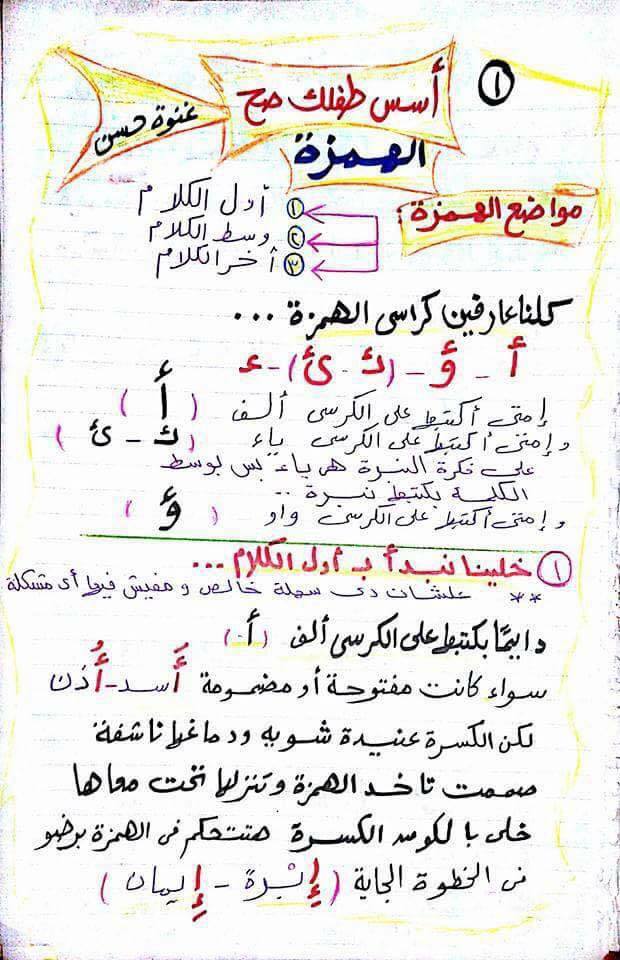 ١
أسس طفلك صح
غنوة حسن
الهمزة
مواضع الهمزة:
١ أول الكلام
٢ وسط الكلام
٣ أخر الكلام
كلنا عارفين كراسى الهمزة ...
أ - ؤ - (ئـ - ئ) - ء
إمتى أكتبها على الكرسى ألف ( أ )
و إمتى أكتبها على الكرسى ياء ( ئـ - ئ )
على فكرة النبرة هى ياء بس بوسط
الكلمة بكتبها نبرة ..
و إمتى أكتبها على الكرسى واو ( ؤ )
١ خلينا نبدأ ب أول الكلام ...
** علشان دى سهلة خالص و مفيش فيها أى مشكلة
دايمًا بكتبها على الكرسى ألف (أ)
سواء كانت مفتوحة أو مضمومة أَسد - أُذن
لكن الكسرة عنيدة شويه ودماغها ناشفة
صممت تاخد الهمزة وتنزلها تحت معاها
خلى بالكوم الكسرة هتتحكم فى الهمزة برضو
فى الخطوة الجاية ( إِبرة - إِيمان )